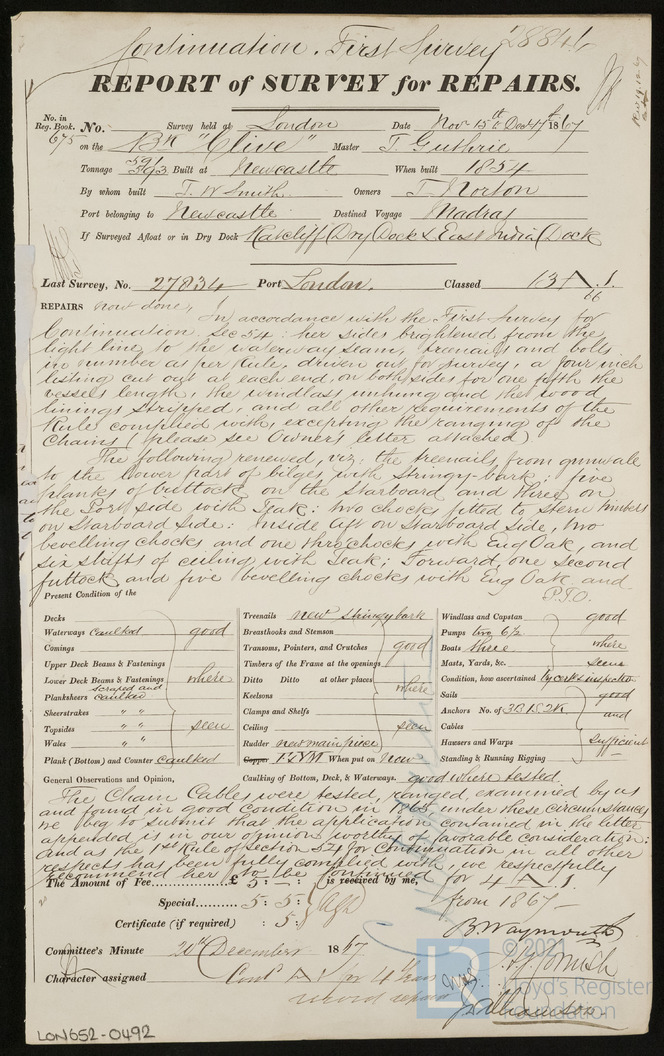 Continuation. First Survey 28841
REPORT of SURVEY for REPAIRS.
No. in Reg. Book. No. Survey held at London Date Nov 15th & Dec 4th 1867
675 on the Bk "Clive" Master T. Guthrie
Tonnage 591 593 Built at Newcastle When built 1854
By whom built T. W. Smith Owners T. Norton
Port belonging to Newcastle Destined Voyage Madras
If Surveyed Afloat or in Dry Dock Ratcliff Dry Dock & East India Dock
Last Survey, No. 27834 Port London. Classed 13 A. 1.
66
REPAIRS now done, In accordance with the First Survey for
Continuation Sec 54: her sides brightened from the
light line to the waterway seam, treenails and bolts
in number as per Rule, driven out for survey, a four inch
listing cut out at each end, on both sides for one fifth the
vessels length, the windlass unhung and the wood
linings stripped, and all other requirements of the
Rule complied with, excepting the ranging of the
Chains (please see Owner's letter attached)
The following renewed, viz: the treenails from gunwale
to the lower part of bilges with Stringy-bark: five
planks of buttock on the Starboard and three on
the Port side with Teak: two chocks fitted to Stern timbers
on Starboard Side: Inside aft on Starboard Side, two
bevelling chocks and one thro' chocks with Eng Oak, and
six shifts of ceiling with Teak; Forward, one Second
futtock and five bevelling chocks with Eng Oak and
P.T.O.
Present Condition of the
Decks
Waterways caulked good
Comings
Upper Deck Beams & Fastenings
Lower Deck Beams & Fastenings where
Planksheers scraped and caulked
Sheerstrakes " "
Topsides " " seen
Wales " "
Plank (Bottom) and Counter caulked
Treenails new Stringy bark
Breasthooks and Stemson
Transoms, Pointers, and Crutches good
Timbers of the Frame at the openings
Ditto Ditto at other places where
Keelsons
Clamps and Shelfs
Ceiling seen
Rudder new main piece
Copper F & Y M When put on Now
Caulking of Bottom, Deck, & Waterways. good where tested.
Windlass and Capstan good
Pumps two 6½
Boats three where
Masts, Yards, &c. seen
Condition, how ascertained by certs inspectn
Sails good
Anchors No. of 3B 1S 2K and
Cables
Hawsers and Warps Sufficient
Standing & Running Rigging
General Observations and Opinion,
The Chain Cables were tested, ranged, examined by us
and found in good Condition in 1865 under these circumstances
we beg to submit that the application contained in the letter
appended is in our opinion worthy of favorable consideration:
and as the 1st Rule of Section 54 for Continuation in all other
respects has been fully complied with, we respectfully
recommend her to be continued for 4 A. 1.
from 1867
The Amount of Fee £ 5 : – : is received by me,
Special 5 : 5 :
Certificate (if required) : 5 :
B. Waymouth
Committee's Minute 20th December 1867
Character assigned Contd A 1 for 4 Years
record repairs
© 2021
Lloyd's Register
Foundation
LON652-0492